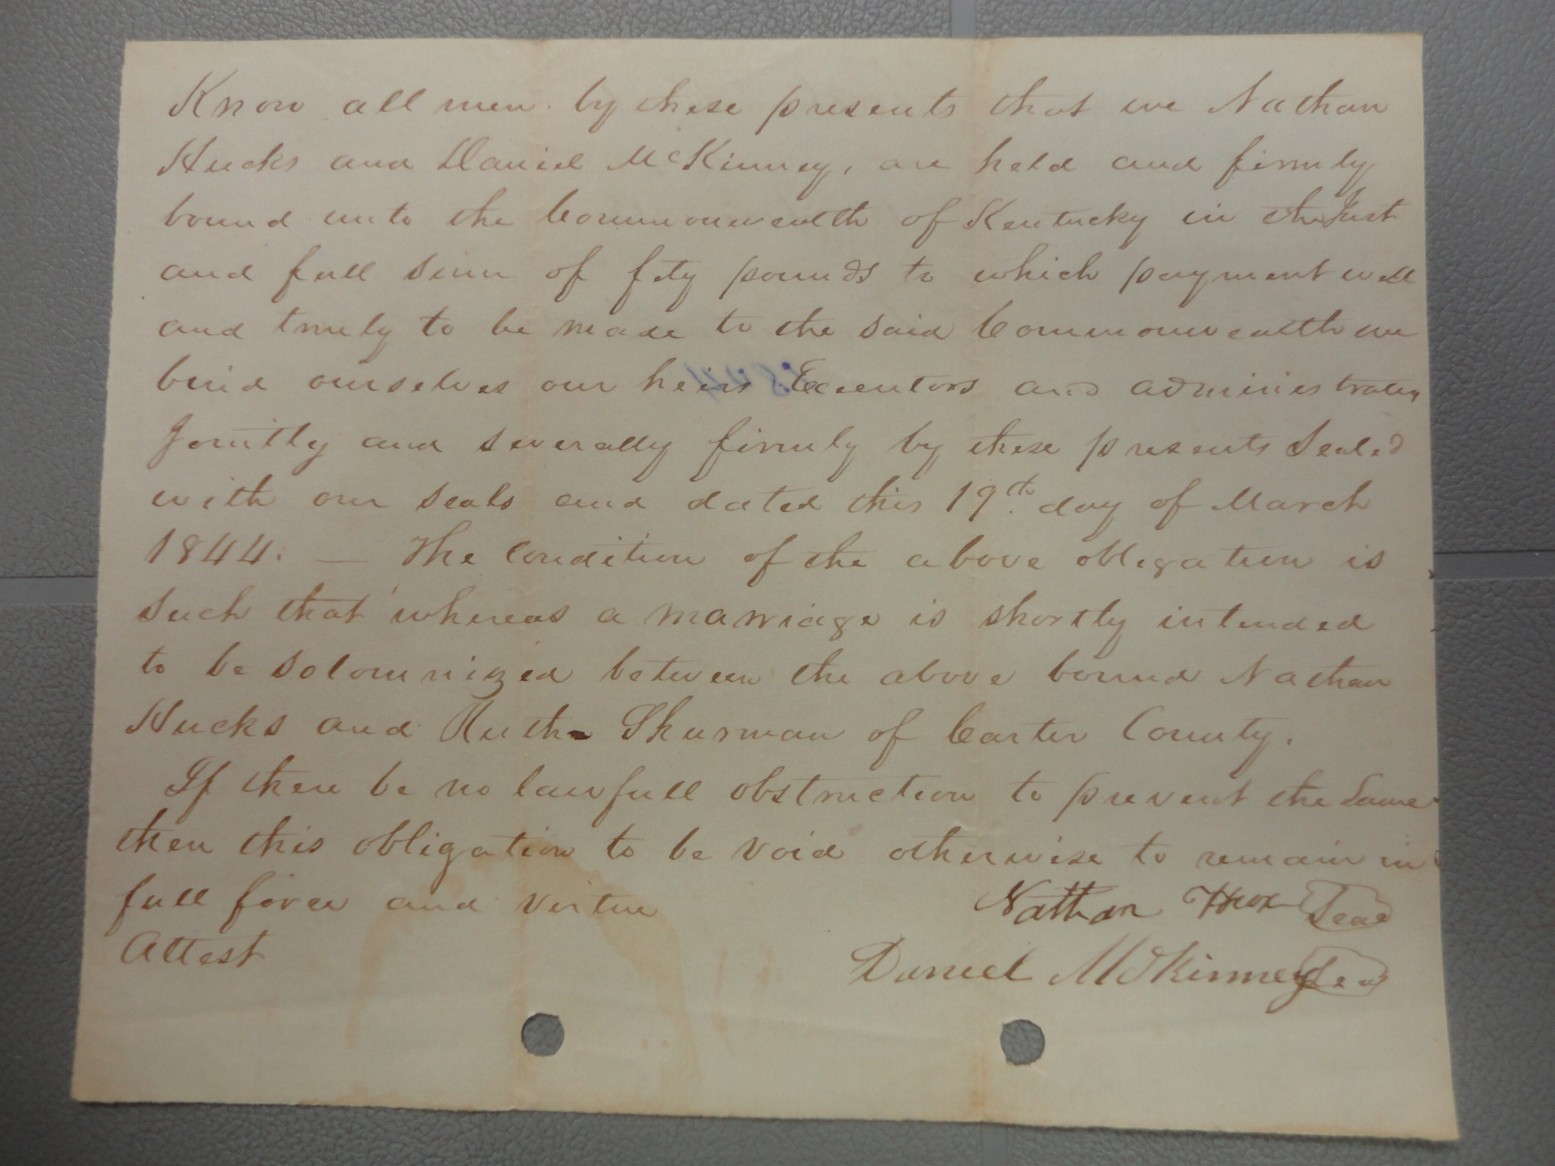 Know all men by these presents that we Nathan
Hucks and Daniel McKinney, are held and firmly
bound unto the Commonwealth of Kentucky in the Just
and full sum of fity pounds to which payment well
and truely to be made to the said Commonwealth we
bind ourselves our heirs Executors and administraters
Jointly and severally firmly by these presents Sealed
with our seals and dated this 19th day of March
1844. — The Condition of the above obligation is
such that whereas a marriage is shortly intended
to be solomnized between the above bound Nathan
Hucks and Ruth Shurman of Carter County.
If there be no lawfull obstruction to prevent the Same
then this obligation to be void otherwise to remain in
full force and virtue
Nathan Hux Seal
Attest
Daniel McKinney Seal